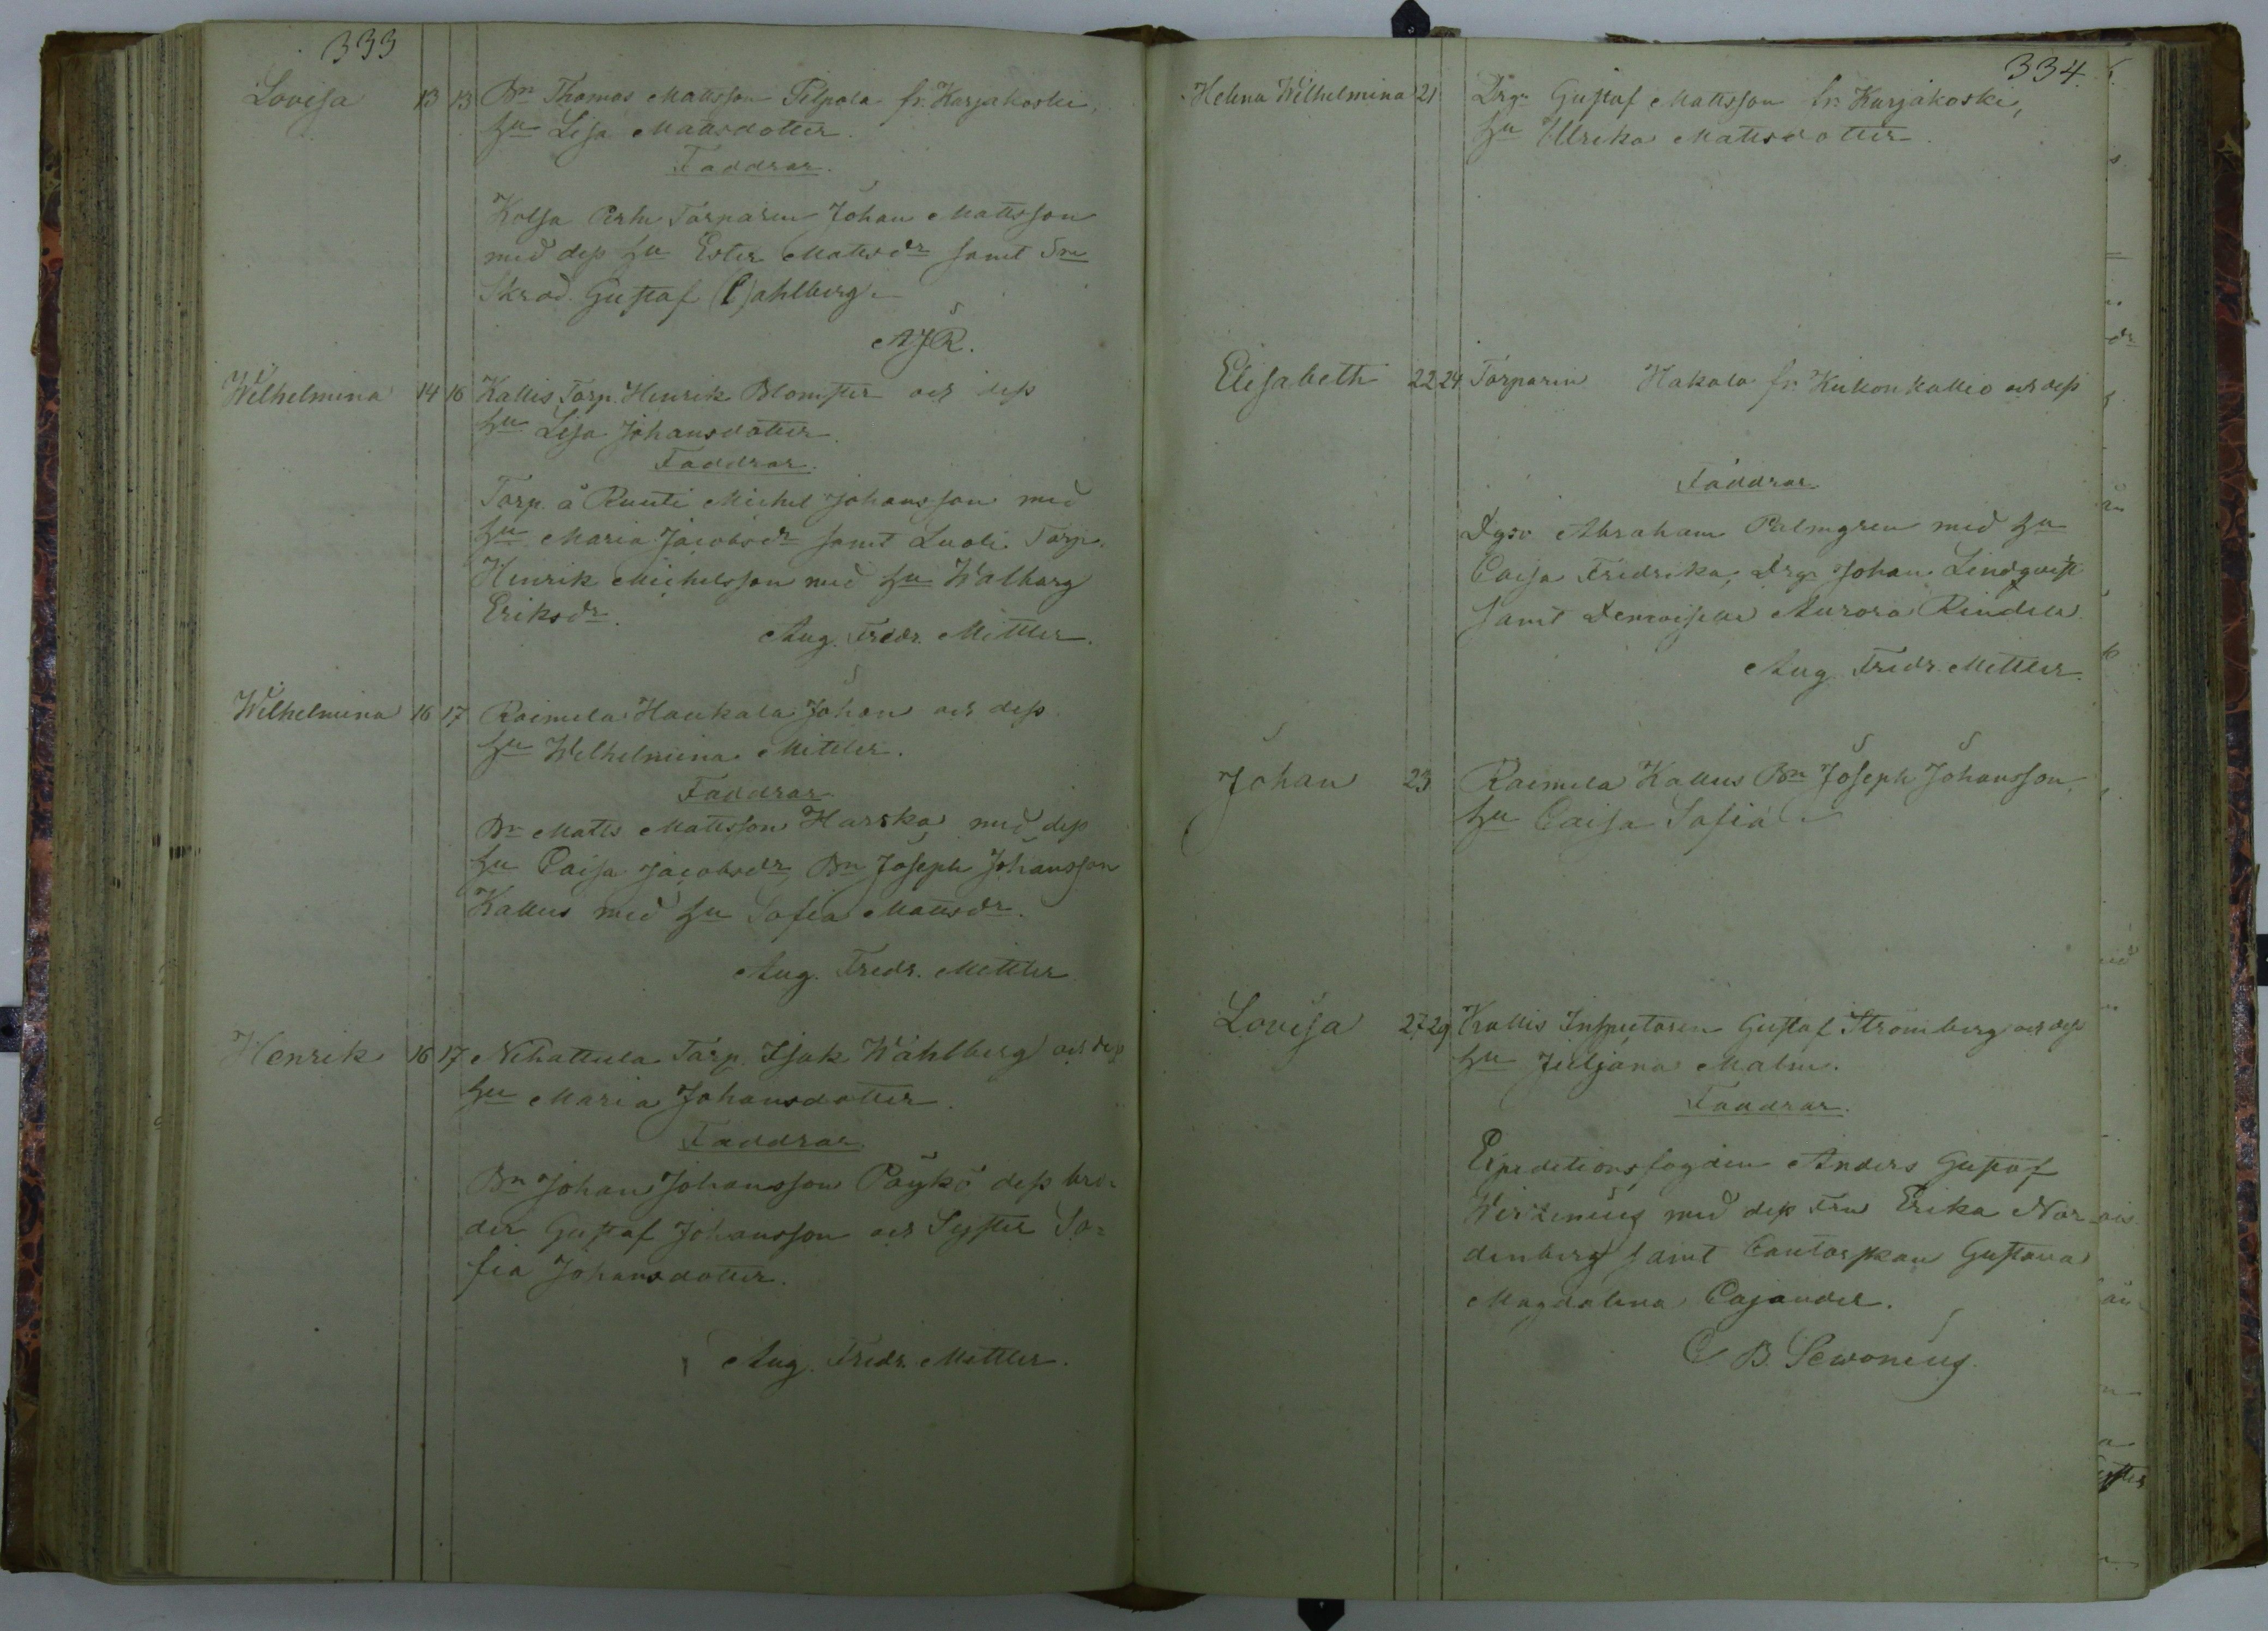 333
Lovisa 13 13 Bn Thomas Mattsson Pilpola fr. Karjakoski,
hu Lisa Mattsdotter.
Faddrar.
Kolsa Torparen Johan Mattsson
med dess hu Ester Mattsdr samt
Skräd. Gustaf Cahlberg.
AJR.
Wilhelmina 14 16 Kallis Torp. Henrik Blomster och dess
hu Lisa Johansdotter.
Faddrar.
Torp. å Ruuti Michel Johansson med
hu Maria Jacobsdr samt Luoli Torp.
Henrik Michelsson med hu Walborg
Eriksdr.
Aug. Fredr. Mittler.
Wilhelmina 16 17 Raimela Haukala Johan och dess
hu Wilhelmina Mittler.
Faddrar.
Bn Matts Mattsson Harska med dess
hu Caisa Jacobsdr, Bn Joseph Johansson
Kallus med hu Sofia Mattsdr.
Aug. Fredr. Mittler
Henrik 16 17 Nihattula Torp. Isak Wahlberg och dess
hu Maria Johansdotter.
Faddrar.
Bn Johan Johansson Pöykö dess bro-
der Gustaf Johansson och Syster So=
fia Johansdotter.
Aug. Fredr. Mittler.
334.
Helena Wilhelmina 21 Drgn Gustaf Mattsson fr. Karjakoski,
hu Ulrika Mattsdotter.
Elisabeth 22 24 Torparen Hakala fr. Kukonkallio och dess
Faddrar.
Abraham Palmgren med hu
Caisa Fredrika, Drgn Johan Lindqvist
samt Demoiselle Aurora Rindell
Aug. Fredr. Mittler.
Johan 23 Raimela Kallus Bn Joseph Johansson,
hu Caisa Sofia
Lovisa 27 29 Kallis Inspectoren Gustaf Strömberg och dess
hu Juljana Malm.
Faddrar.
Expeditionsfogden Anders Gustaf
Wirzenius med dess Fru Erika Nor-
denberg samt Cantorskan Gustava
Magdalena Cajander.
C B. Sewonius.